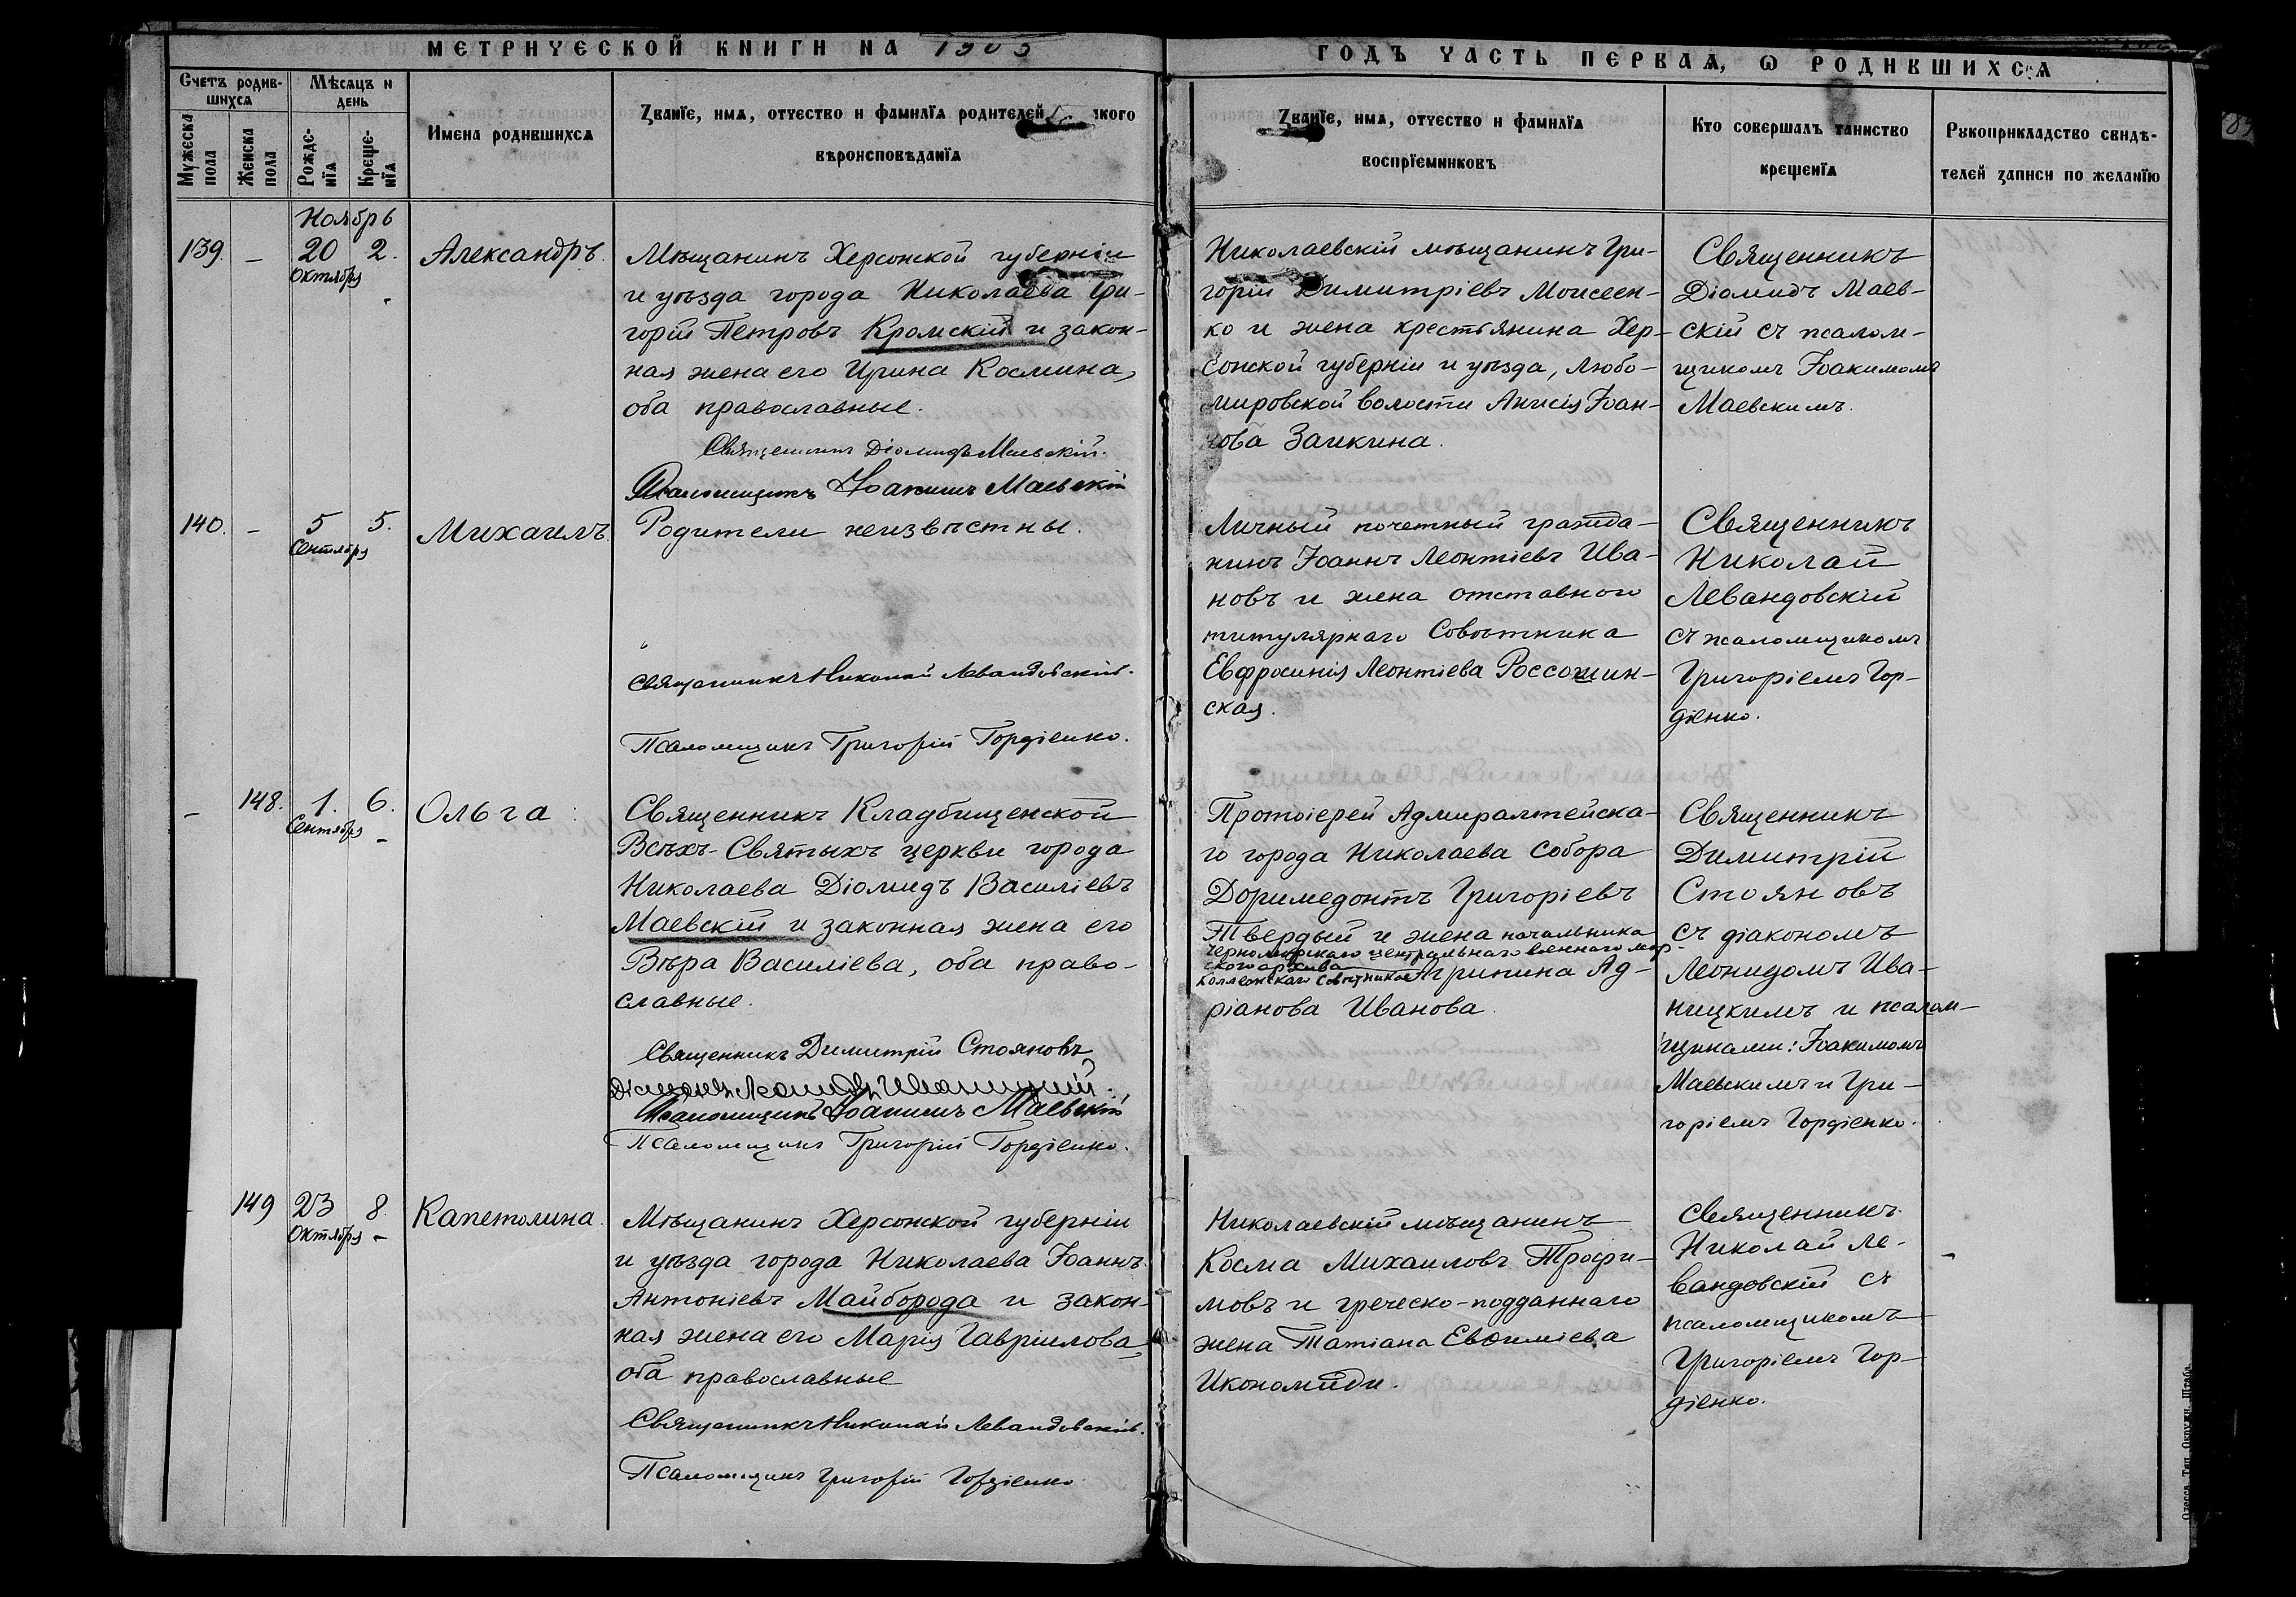 МЕТРИЧЕСКОЙ КНИГИ НА 1905
ГОДЪ ЧАСТЬ ПЕРВАЯ, Ѡ РОДИВШИХСЯ
Счетъ родив-
шихся
Мѣсяцъ и
день
Мужеска
пола
Женска
пола
Рожде-
нїя
Креще-
нїя
Имена родившихся
Званїе, имя, отчество и фамилїя родителей
вѣроисповѣданїя
Званїе, имя, отчество и фамилїя
воспрїемниковъ
Кто совершалъ таинство
крещенїя
Рукоприкладство свидѣ-
телей записи по желанїю
Ноябрь
139. – 20 2. Александръ.
Октября
Мѣщанинъ Херсонской губерніи
и уѣзда города Николаева Гри-
горій Петровъ Кромскій и закон-
ная жена его Ирина Космина,
оба православные.
Священникъ Діомидъ Маевскій.
Псаломщикъ Іоакимъ Маевскій
Николаевскій мѣщанинъ Гри-
горій Димитріевъ Моисеен-
ко и жена крестьянина Хер-
сонской губерніи и уѣзда, Любо-
мировской волости Анисія Іоан-
нова Заикина.
Священникъ
Діомидъ Маев-
скій съ псалом-
щикомъ Іоакимомъ
Маевскимъ.
140. – 5 5. Михаилъ.
Сентября
Родители неизвѣстны.
Священникъ Николай Левандовскій.
Псаломщикъ Григорій Гордіенко.
Личный почетный гражда-
нинъ Іоаннъ Леонтіевъ Ива-
новъ и жена отставного
титулярнаго Совѣтника
Евфросинія Леонтіева Россожин-
ская.
Священникъ
Николай
Левандовскій
съ псаломщикомъ
Григоріемъ Гор-
діенко.
– 148. 1. 6. Ольга
Сентября –
Священникъ Кладбищенской
Всѣхъ-Святыхъ церкви города
Николаева Діомидъ Василіевъ
Маевскій и законная жена его
Вѣра Василіева, оба право-
славные.
Священникъ Димитрій Стояновъ
Діаконъ Леонидъ Иваницкій.
Псаломщикъ Іоакимъ Маевскій
Псаломщикъ Григорій Гордіенко.
Протоіерей Адмиралтейска-
го города Николаева Собора
Доримедонтъ Григоріевъ
Твердый и жена начальника
Черноморскаго центральнаго военнаго мор-
ского архива
Коллежскаго Совѣтника Агрипина Ад-
ріанова Иванова.
Священникъ
Димитрій
Стояновъ
съ діакономъ
Леонидомъ Ива-
ницкимъ и псалом-
щиками: Іоакимомъ
Маевскимъ и Гри-
горіемъ Гордіенко.
149 23 8 Капетолина.
Октября –
Мѣщанинъ Херсонской губерніи
и уѣзда города Николаева Іоаннъ
Антоніевъ Майборода и закон-
ная жена его Марія Гавріилова,
оба православные
Священникъ Николай Левандовскій.
Псаломщикъ Григорій Гордіенко
Николаевскій мѣщанинъ
Косма Михаиловъ Трофи-
мовъ и греческо-подданнаго
жена Татіана Евѳиміева
Икономиди.
Священникъ
Николай Ле-
вандовскій съ
псаломщикомъ
Григоріемъ Гор-
діенко.